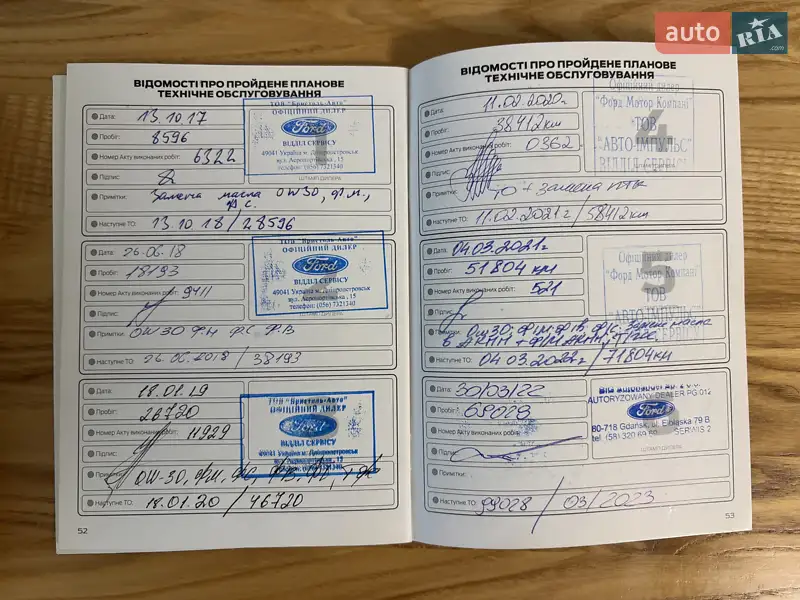 auto RIA.com
ВІДОМОСТІ ПРО ПРОЙДЕНЕ ПЛАНОВЕ
ТЕХНІЧНЕ ОБСЛУГОВУВАННЯ
Дата: 13.10.17
Пробіг: 8596
Номер Акту виконаних робіт: 6322
Підпис:
Примітки: Заміна масла 0W30, ф.м.,
ф.с.
Наступне ТО: 13.10.18/28596
ТОВ "Бристоль-Авто"
ОФІЦІЙНИЙ ДИЛЕР
Ford
ВІДДІЛ СЕРВІСУ
49041 Україна м. Дніпропетровськ
вул. Аеропортівська, 15
телефон: (056) 7321340
ШТАМП ДИЛЕРА
1
Дата: 26.06.18
Пробіг: 18193
Номер Акту виконаних робіт: 9411
Підпис:
Примітки: 0W30 ФМ ФС ФВ
Наступне ТО: 26.06.2019/38193
ТОВ "Бристоль-Авто"
ОФІЦІЙНИЙ ДИЛЕР
Ford
ВІДДІЛ СЕРВІСУ
49041 Україна м. Дніпропетровськ
вул. Аеропортівська, 15
телефон: (056) 7321340
Дата: 18.01.19
Пробіг: 26720
Номер Акту виконаних робіт: 11929
Підпис:
Примітки: 0W-30, ФМ, ФС, ФВ,
Наступне ТО: 18.01.20/46720
ТОВ "Бристоль-Авто"
ОФІЦІЙНИЙ ДИЛЕР
Ford
ВІДДІЛ СЕРВІСУ
49041 Україна м. Дніпропетровськ
52
ВІДОМОСТІ ПРО ПРОЙДЕНЕ ПЛАНОВЕ
ТЕХНІЧНЕ ОБСЛУГОВУВАННЯ
Дата: 11.02.2020г
Пробіг: 38412 км
Номер Акту виконаних робіт: 0362
Підпис:
Примітки: ТО + замена
Наступне ТО: 11.02.2021г/58412 км
Офіційний дилер
"Форд Мотор Компані"
ТОВ
"АВТО-ІМПУЛЬС"
ВІДДІЛ СЕРВІСУ
4
Дата: 04.03.2021г
Пробіг: 51804 км
Номер Акту виконаних робіт: 521
Підпис:
Примітки: 0W30, ФМ, ФВ, ФС, замена масла
в АКПП + ФМ АКПП,
Наступне ТО: 04.03.2022г/71804км
Офіційний дилер
"Форд Мотор Компані"
ТОВ
"АВТО-ІМПУЛЬС"
ВІДДІЛ СЕРВІСУ
5
Дата: 30/03/22
Пробіг: 68028
Номер Акту виконаних робіт:
Підпис:
Примітки:
Наступне ТО: 99028/03/2023
AUTORYZOWANY DEALER PG 012
Ford
80-718 Gdańsk, ul. Elbląska 79 B
tel. (58) 320
SERWIS 2
ШТАМП ДИЛЕРА
53